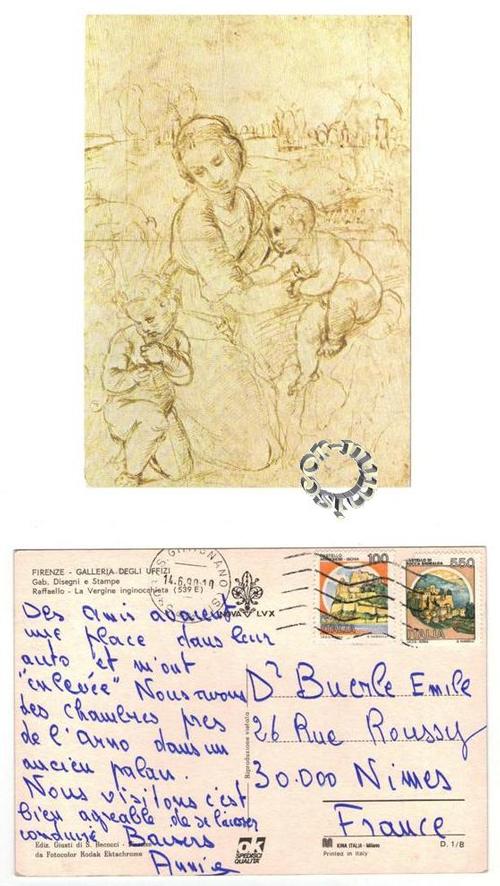 FIRENZE - GALLERIA DEGLI UFFIZI
Gab. Disegni e Stampe
Raffaello - La Vergine inginocchiata (539 E)
GIMIGNANO
14.6.90.10
NOVA LVX
CASTELLO
ARAGONESE - ISCHIA
100
ITALIA
CASTELLO DI
ROCCA SINIBALDA
550
ITALIA
Des amis avaient
une place dans leur
auto et m'ont
"enlevée" Nous avons
des chambres près
de l'Arno dans un
ancien palais.
Nous visitons c'est
bien agréable de se laisser
conduire Baisers
Annie
Dr Buerle Emile
26 Rue Roussy
30.000 Nimes
France
Riproduzione vietata
Ediz. Giusti di S. Becocci - Firenze
da Fotocolor Kodak Ektachrome
ok
SPEDISCI
QUALITÀ
KINA ITALIA - Milano
Printed in Italy
D. 1/8